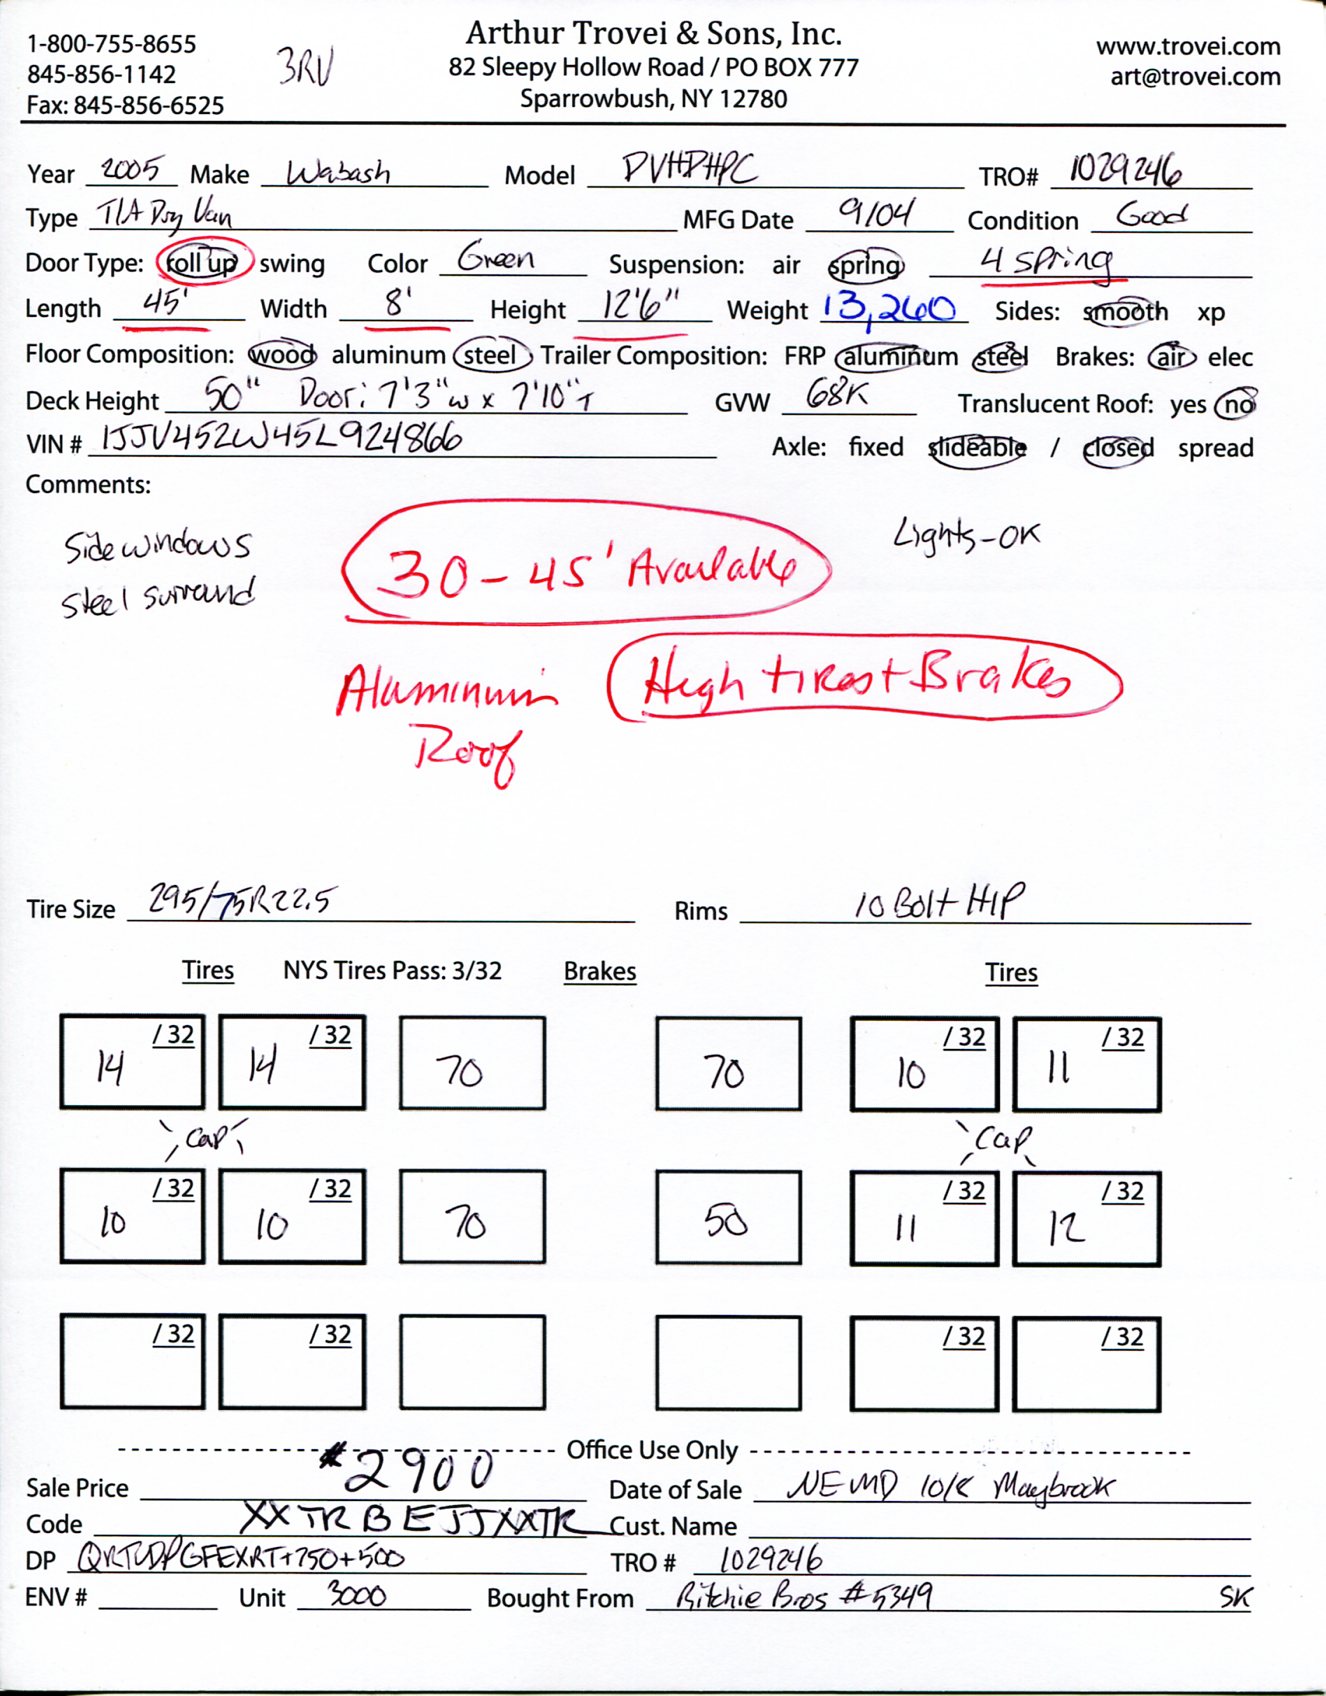 Arthur Trovei & Sons, Inc.
1-800-755-8655 82 Sleepy Hollow Road / PO BOX 777 www.trovei.com
845-856-1142 3RV Sparrowbush, NY 12780 art@trovei.com
Fax: 845-856-6525
Year 2005 Make Wabash Model DVHDHPC TRO# 1029246
Type T/A Dry Van MFG Date 9/04 Condition Good
Door Type: roll up swing Color Green Suspension: air spring 4 spring
Length 45' Width 8' Height 12'6" Weight 13,260 Sides: smooth xp
Floor Composition: wood aluminum steel Trailer Composition: FRP aluminum steel Brakes: air elec
Deck Height 50" Door: 7'3"w x 7'10"T GVW 68K Translucent Roof: yes no
VIN # 1JJV452W45L924866 Axle: fixed slideable / closed spread
Comments:
Side windows 30-45' Available Lights-OK
Steel surround
Aluminum High tires + Brakes
Roof
Tire Size 295/75R22.5 Rims 10 Bolt HP
Tires NYS Tires Pass: 3/32 Brakes Tires
14 /32 14 /32 70 70 10 /32 11 /32
Cap Cap
10 /32 10 /32 70 50 11 /32 12 /32
/32 /32 /32 /32
Office Use Only
Sale Price #2900 Date of Sale NEMD 10/8 Maybrook
Code XXTRBEJJXXTR Cust. Name
DP +750+500 TRO # 1029246
ENV # Unit 3000 Bought From Ritchie Bros #5349 SK